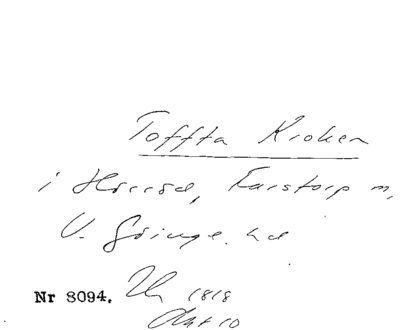 Toffta Kroken
i Hörröd, Farstorp m,
V. Göinge. hd
Nr 8094. Uh 1818
Akt 10